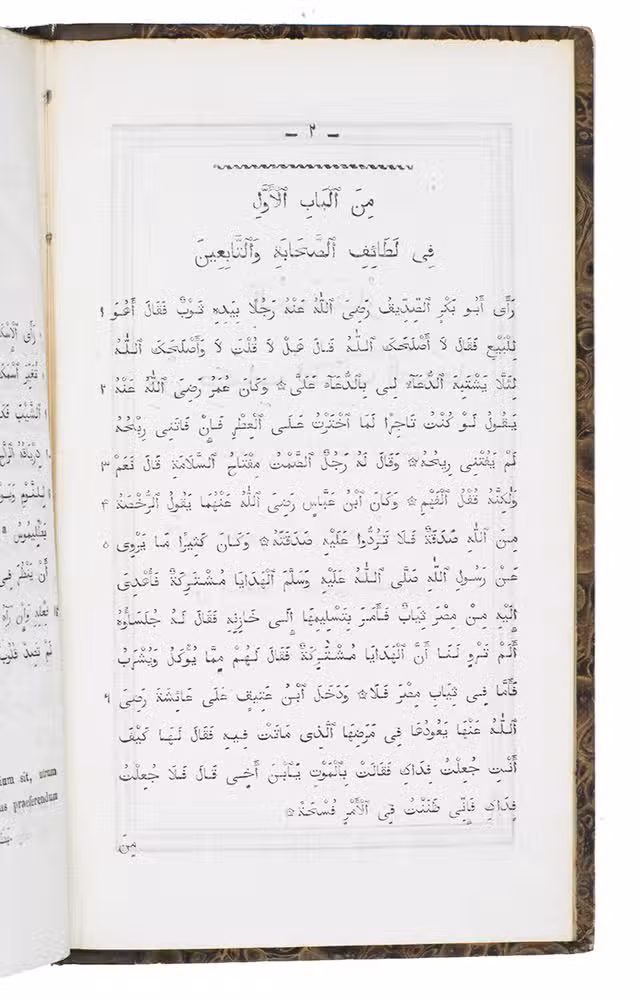 — ٢ —
مِنَ ٱلْبَابِ ٱلْأَوَّلِ
فِى لَطَائِفِ ٱلصَّحَابَةِ وَٱلتَّابِعِينَ
١ رَأَى أَبُو بَكْرٍ ٱلصِّدِّيقُ رَضِىَ ٱللّٰهُ عَنْهُ رَجُلًا بِيَدِهِ ثَوْبٌ فَقَالَ أَهُوَ
لِلْبَيْعِ فَقَالَ لَا أَصْلَحَكَ ٱللّٰهُ قَالَ هَلْ لَا قُلْتَ لَا وَأَصْلَحَكَ ٱللّٰهُ
٢ لِئَلَّا يَشْتَبِهَ ٱلدُّعَآءُ لِى بِٱلدُّعَآءِ عَلَىَّ ۞ وَكَانَ عُمَرُ رَضِىَ ٱللّٰهُ عَنْهُ
يَقُولُ لَوْ كُنْتُ تَاجِرًا لَمَا ٱخْتَرْتُ عَلَى ٱلْعِطْرِ فَإِنْ فَاتَنِى رِبْحُهُ
٣ لَمْ يَفُتْنِى رِيحُهُ ۞ وَقَالَ لَهُ رَجُلٌ ٱلصَّمْتُ مِفْتَاحُ ٱلسَّلَامَةِ قَالَ نَعَمْ
٤ وَلٰكِنَّهُ قُفْلُ ٱلْفَهْمِ ۞ وَكَانَ ٱبْنُ عَبَّاسٍ رَضِىَ ٱللّٰهُ عَنْهُمَا يَقُولُ ٱلرُّخْصَةُ
٥ مِنَ ٱللّٰهِ صَدَقَةٌ فَلَا تَرُدُّوا عَلَيْهِ صَدَقَتَهُ ۞ وَكَانَ كَثِيرًا مَا يَرْوِى
عَنْ رَسُولِ ٱللّٰهِ صَلَّى ٱللّٰهُ عَلَيْهِ وَسَلَّمَ ٱلْهَدَايَا مُشْتَرَكَةٌ فَأُهْدِىَ
إِلَيْهِ مِنْ مِصْرَ ثِيَابٌ فَأَمَرَ بِتَسْلِيمِهَا إِلَى خَازِنِهِ فَقَالَ لَهُ جُلَسَاؤُهُ
أَلَمْ تَرْوِ لَنَا أَنَّ ٱلْهَدَايَا مُشْتَرَكَةٌ فَقَالَ لَهُمْ مِمَّا يُؤْكَلُ وَيُشْرَبُ
٦ فَأَمَّا فِى ثِيَابِ مِصْرَ فَلَا ۞ وَدَخَلَ ٱبْنُ عَتِيقٍ عَلَى عَائِشَةَ رَضِىَ
ٱللّٰهُ عَنْهَا يَعُودُهَا فِى مَرَضِهَا ٱلَّذِى مَاتَتْ فِيهِ فَقَالَ لَهَا كَيْفَ
أَنْتِ جُعِلْتُ فِدَاكِ فَقَالَتْ بِٱلْمَوْتِ يَٱبْنَ أَخِى قَالَ فَلَا جُعِلْتُ
فِدَاكِ فَإِنِّى ظَنَنْتُ فِى ٱلْأَمْرِ فُسْحَةً ۞
مِنَ
ium sit, utrum
us praeferendum